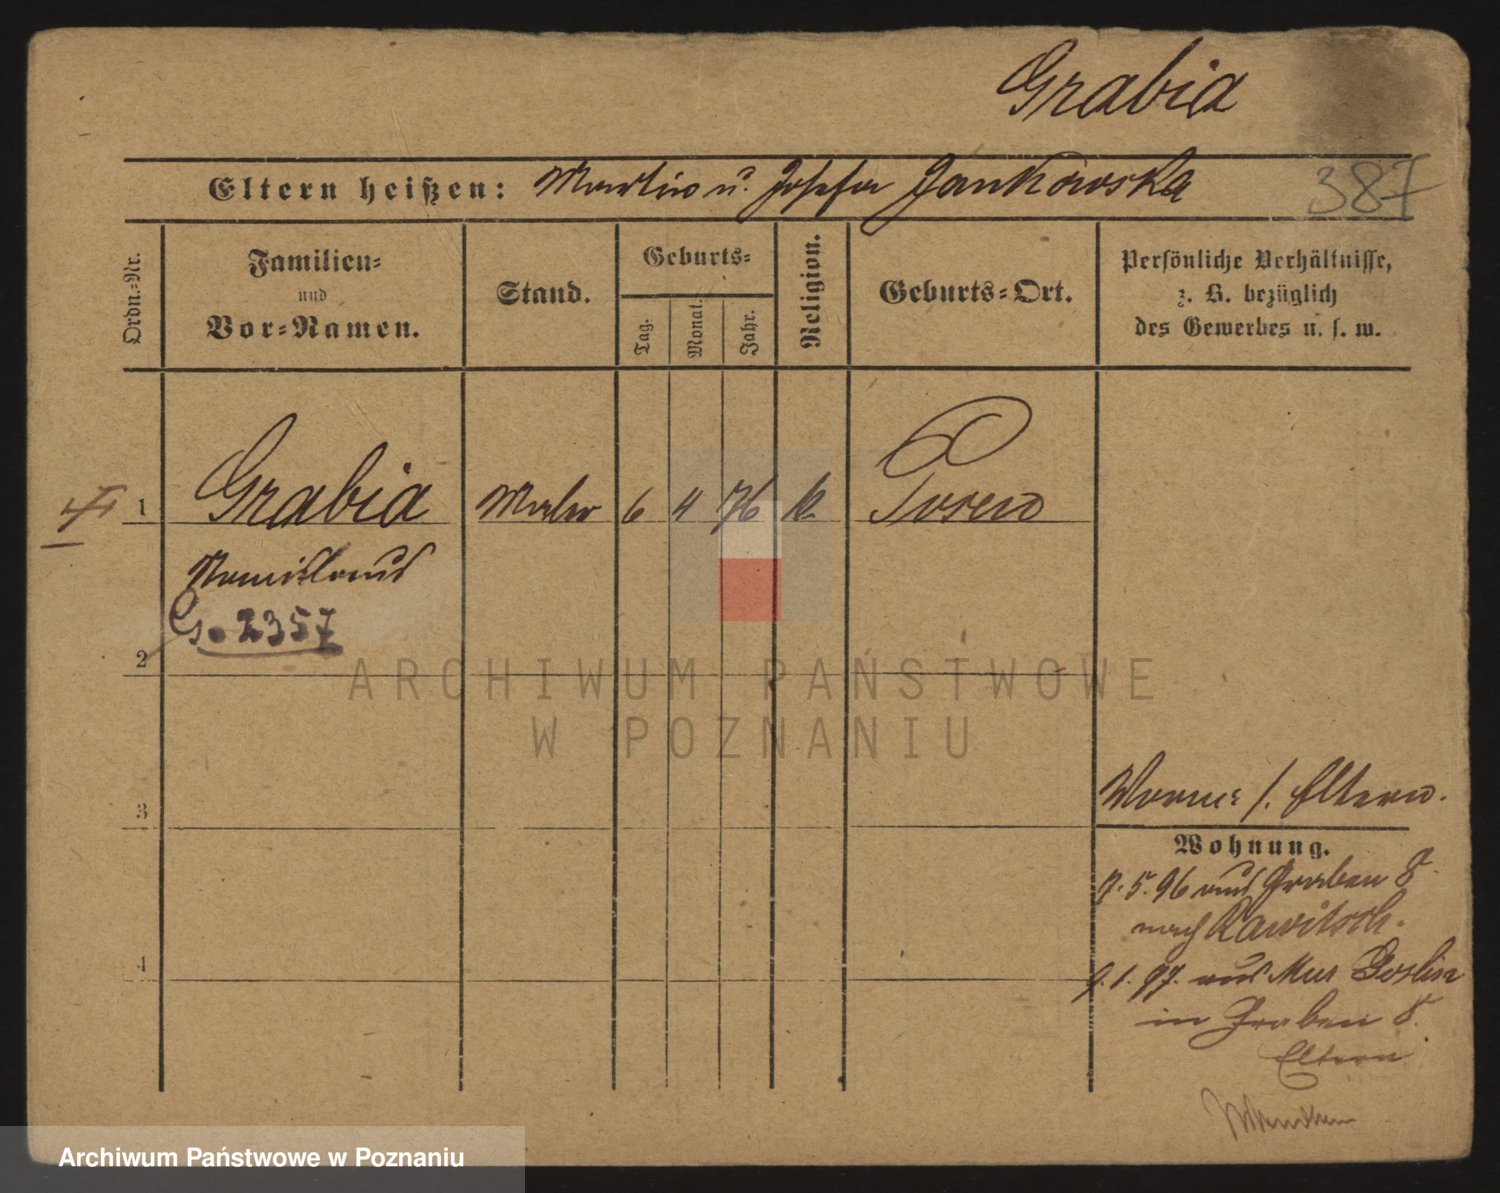 Grabia
Eltern heißen: Martin u. Josefa Jankowska
387
Ordn.-Nr.
Familien-
und
Vor-Namen.
Stand.
Geburts-
Tag.
Monat.
Jahr.
Religion.
Geburts-Ort.
Persönliche Verhältnisse,
z. B. bezüglich
des Gewerbes u. s. w.
1 Grabia Maler 6 4 76 k. Posen
G. 2357
2
ARCHIWUM PAŃSTWOWE
W POZNANIU
3
Eltern.
Wohnung.
7. 5. 96 aus Graben 8
nach Rawitsch.
9. 1. 97. aus Mur Goslin
4
in Graben 8.
Eltern
Archiwum Państwowe w Poznaniu